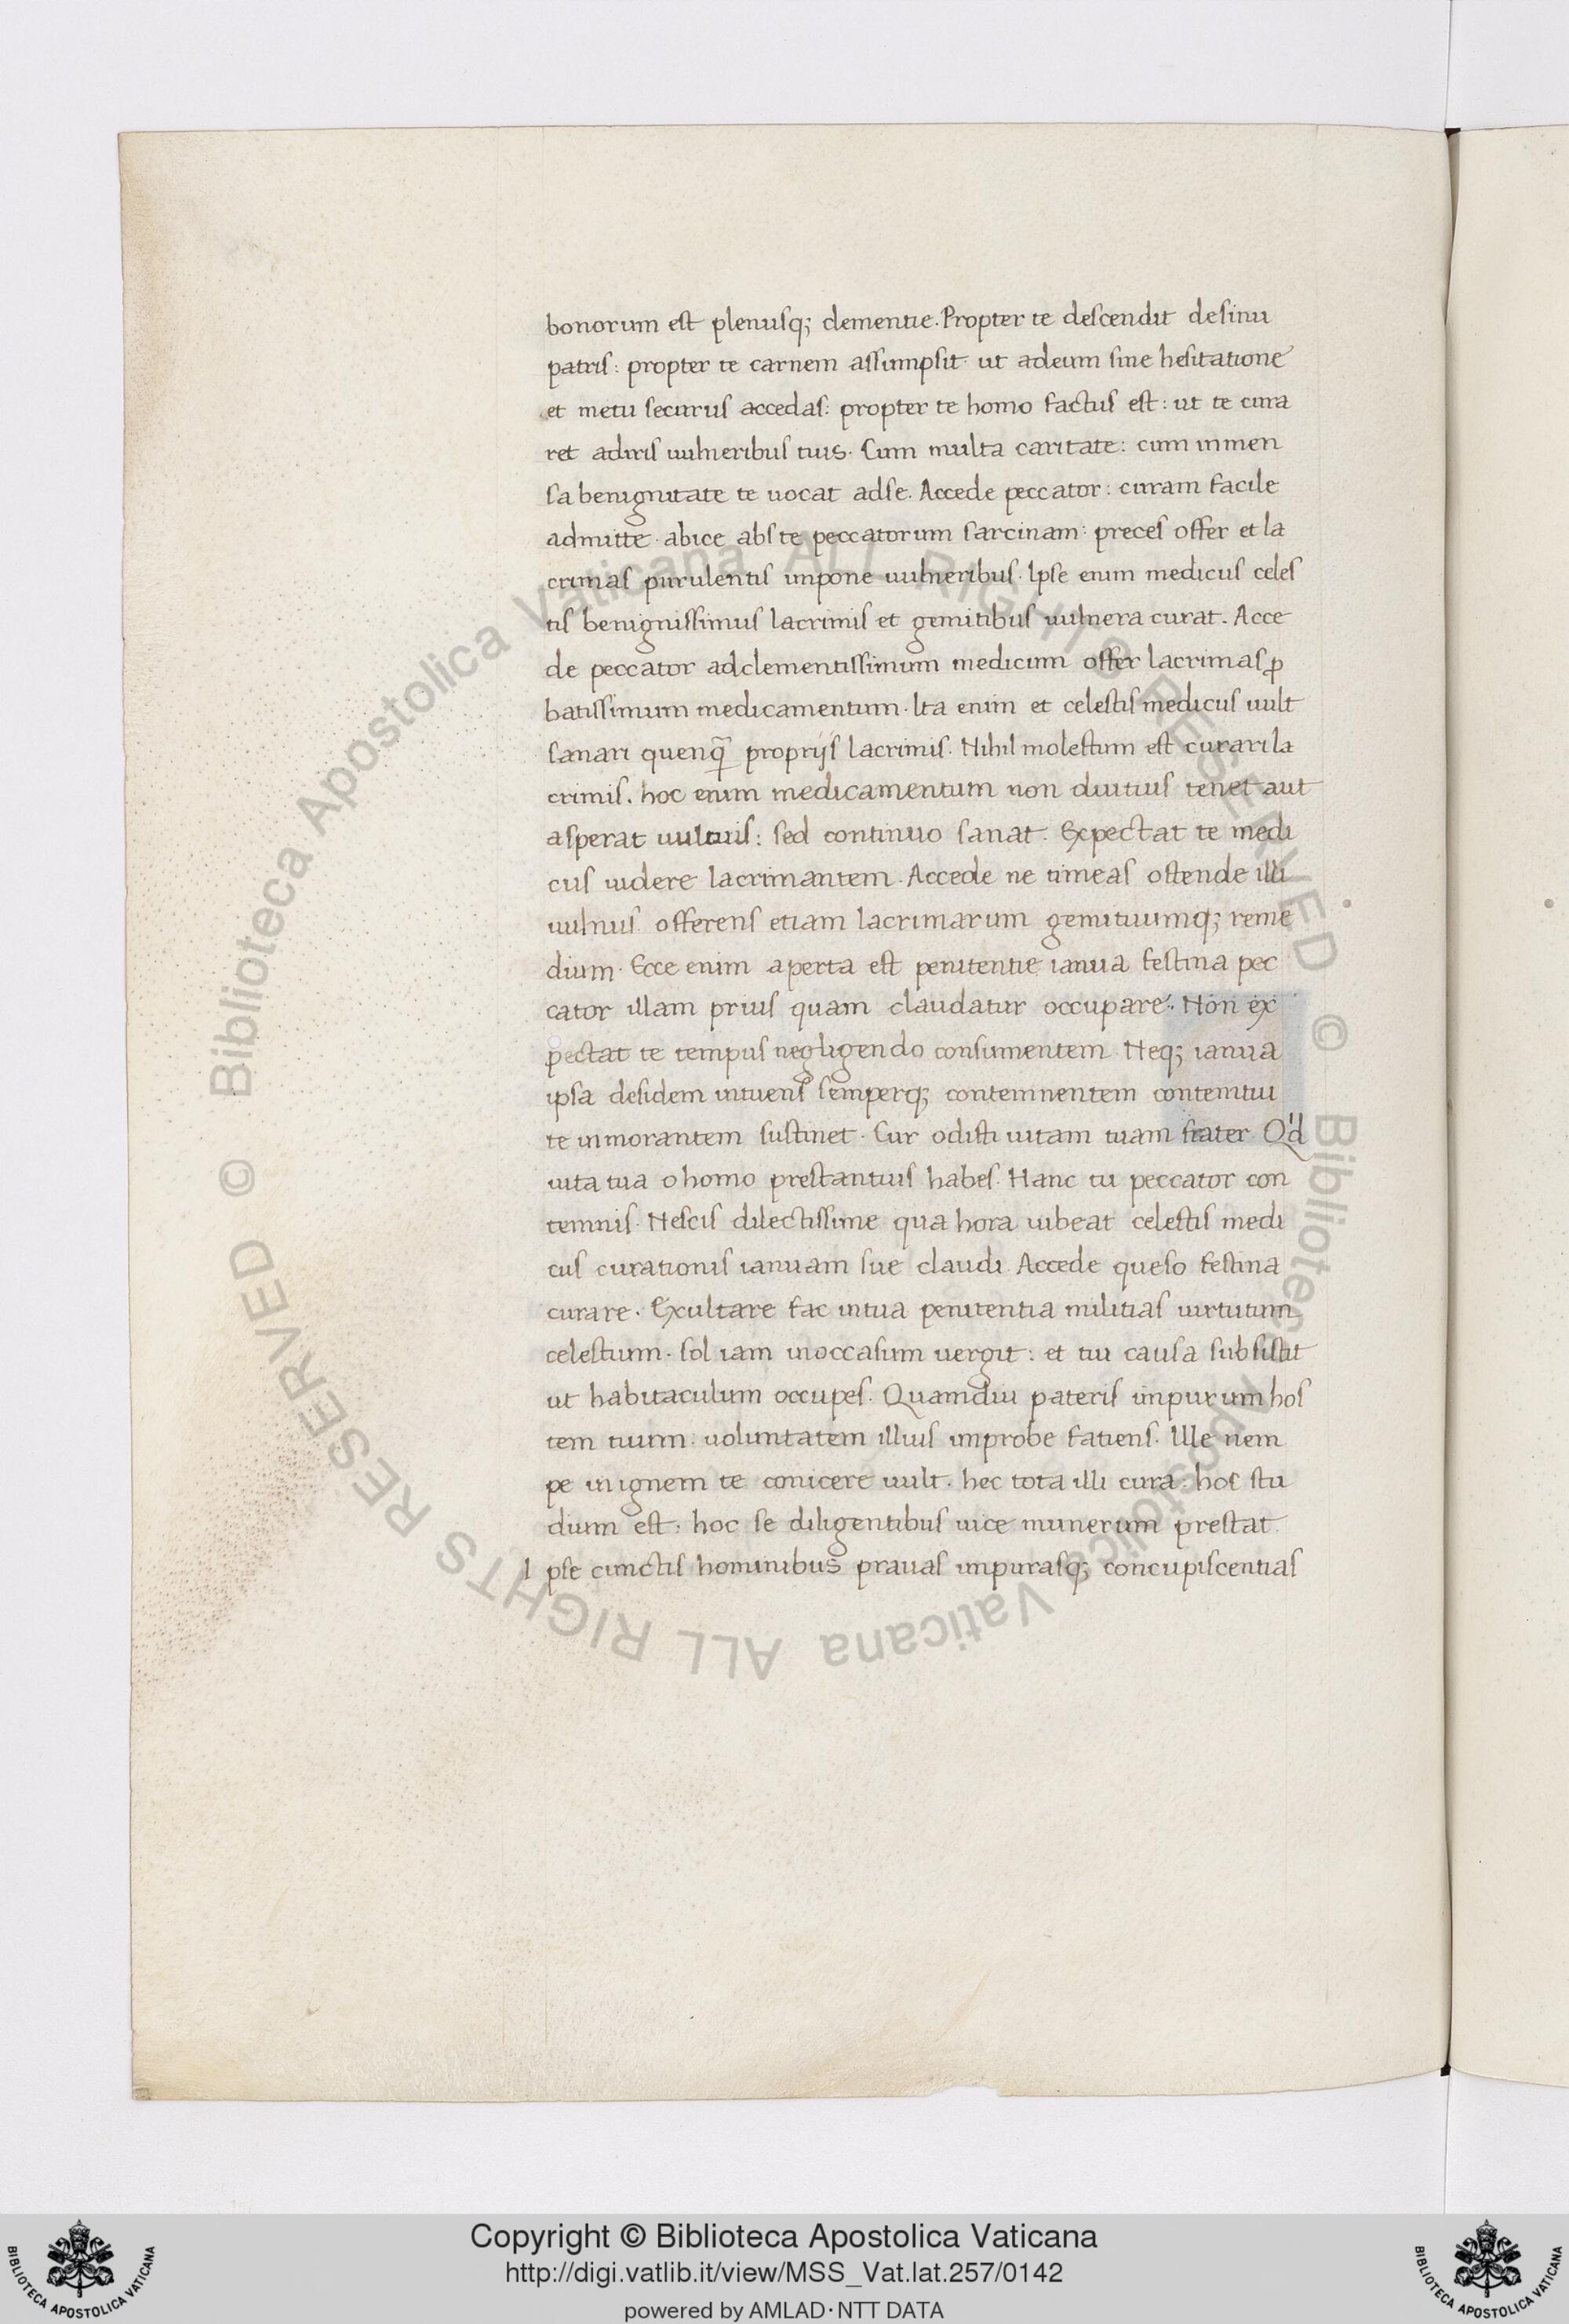 bonorum est plenusq; clementie. Propter te descendit desinu
patris: propter te carnem assumpsit ut adeum sine hesitatione
et metu securus accedas: propter te homo factus est: ut te cura
ret adiris uulneribus tuis. Cum multa caritate: cum inmen
sa benignitate te uocat adse. Accede peccator: curam facile
admitte. abice abs te peccatorum sarcinam: preces offer et la
crimas purulentis impone uulneribus. Ipse enim medicus celes
tis benignissimus lacrimis et gemitibus uulnera curat. Acce
de peccator adclementissimum medicum offer lacrimas ꝓ
batissimum medicamentum. Ita enim et celestis medicus uult
sanari quenq̃ proprijs lacrimis. Nihil molestum est curari la
crimis. hoc enim medicamentum non diutius tenet aut
asperat uulnus: sed continuo sanat. Expectat te medi
cus uidere lacrimantem. Accede ne timeas ostende illi
uulnus offerens etiam lacrimarum gemituumq; reme
dium. Ecce enim aperta est penitentie ianua festina pec
cator illam prius quam claudatur occupare. Non ex
pectat te tempus negligendo consumentem. Neq; ianua
ipsa desidem intuens semperq; contemnentem
te inmorantem sustinet. Cur odisti uitam tuam frater Q'd
uita tua o homo prestantius habes. Hanc tu peccator con
temnis. Nescis dilectissime qua hora uibeat celestis medi
cus curationis ianuam sue claudi. Accede queso festina
curare. Exultare fac intua penitentia militias uirtutum
celestium. sol iam inoccasum uergit: et tui causa subsistit
ut habitaculum occupes. Quamdiu pateris impurum hos
tem tuum: uoluntatem illius improbe fatiens. Ille nem
pe in ignem te conicere uult. hec tota illi cura: hoc stu
dium est. hoc se diligentibus uice munerum prestat.
Ipse cunctis hominibus prauas impurasq; concupiscentias
© Biblioteca Apostolica Vaticana ALL RIGHTS RESERVED © Biblioteca Apostolica Vaticana ALL RIGHTS RESERVED
Copyright © Biblioteca Apostolica Vaticana
http://digi.vatlib.it/view/MSS_Vat.lat.257/0142
powered by AMLAD·NTT DATA
BIBLIOTECA APOSTOLICA VATICANA
BIBLIOTECA APOSTOLICA VATICANA